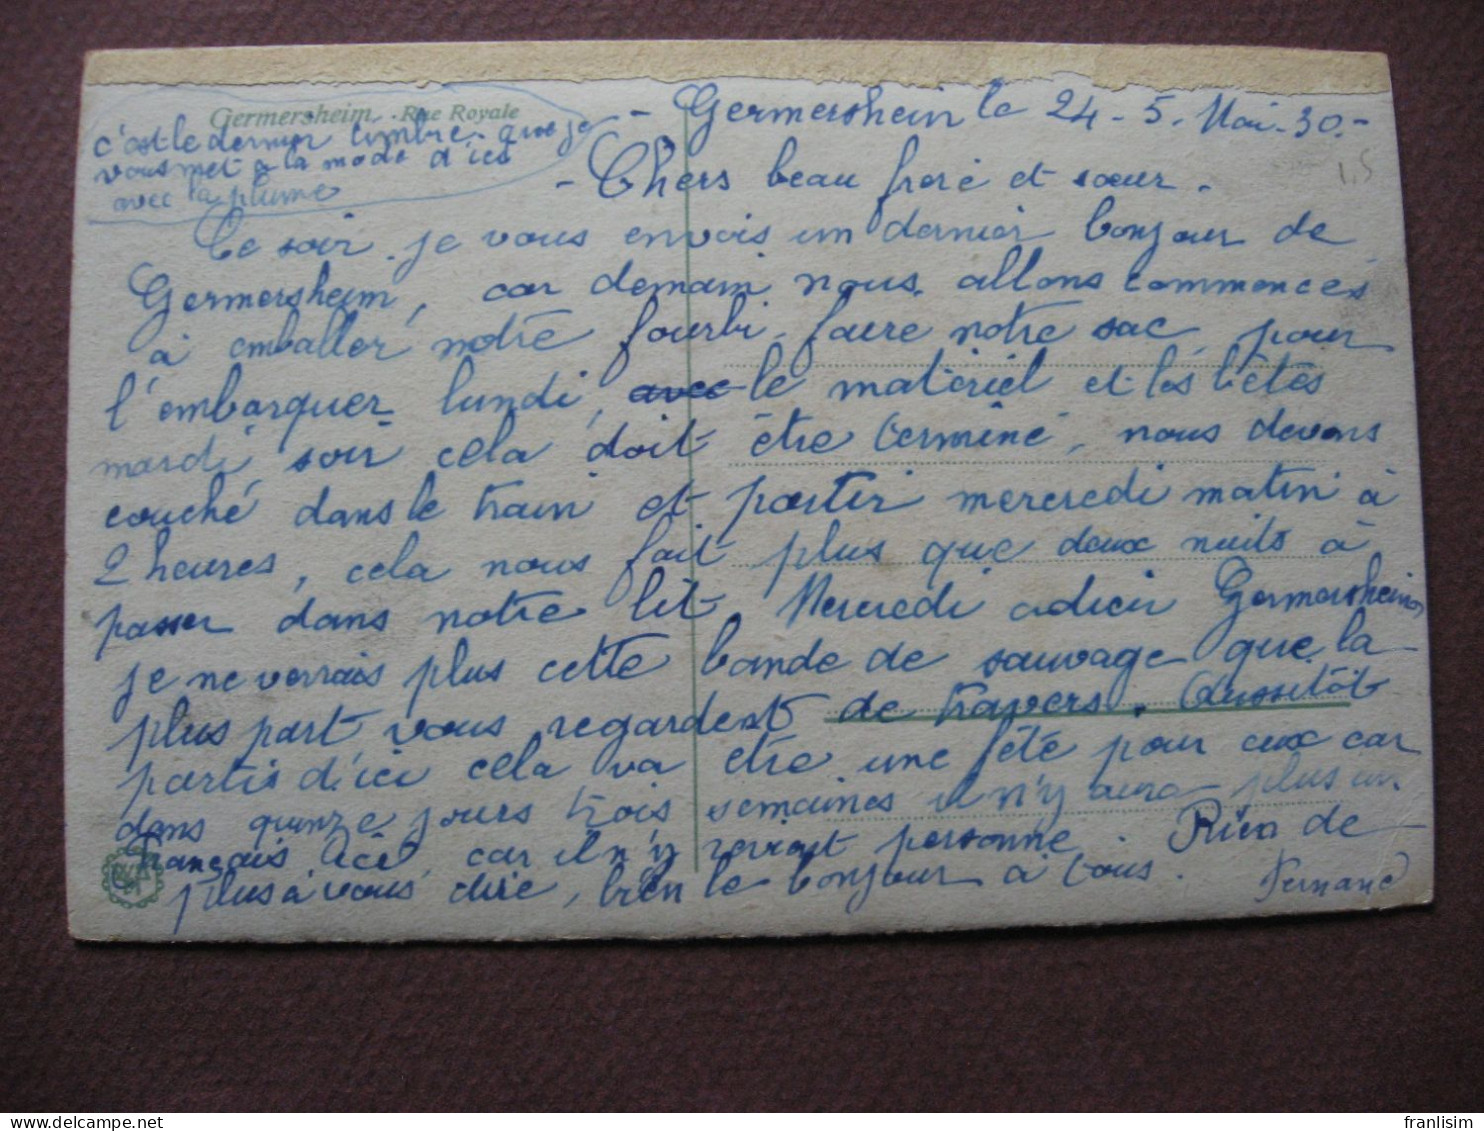 Germersheim . Rue Royale
c'est le dernier timbre que je
vous met a la mode d'ici
avec la plume
- Germersheim le 24-5. Mai-30.-
1,5
- Chers beau frere et sœur.
Ce soir je vous envois un dernier bonjour de
Germersheim, car demain nous allons commencés
à emballer notre fourbi, faire notre sac, pour
l'embarquer lundi, avec le matériel et les bêtes
mardi soir cela doit être terminé, nous devons
couché dans le train et partir mercredi matin à
2 heures, cela nous fait plus que deux nuits à
passer dans notre lit Mercredi adieu Germersheim
je ne verrais plus cette bande de sauvage que la
plus part vous regardent de travers. Aussitôt
partis d'ici cela va etre une fête pour eux car
dans quinze jours trois semaines il n'y aura plus un
français ici car il n'y revient personne. Rien de
plus à vous dire, bien le bonjour à tous. Fernand